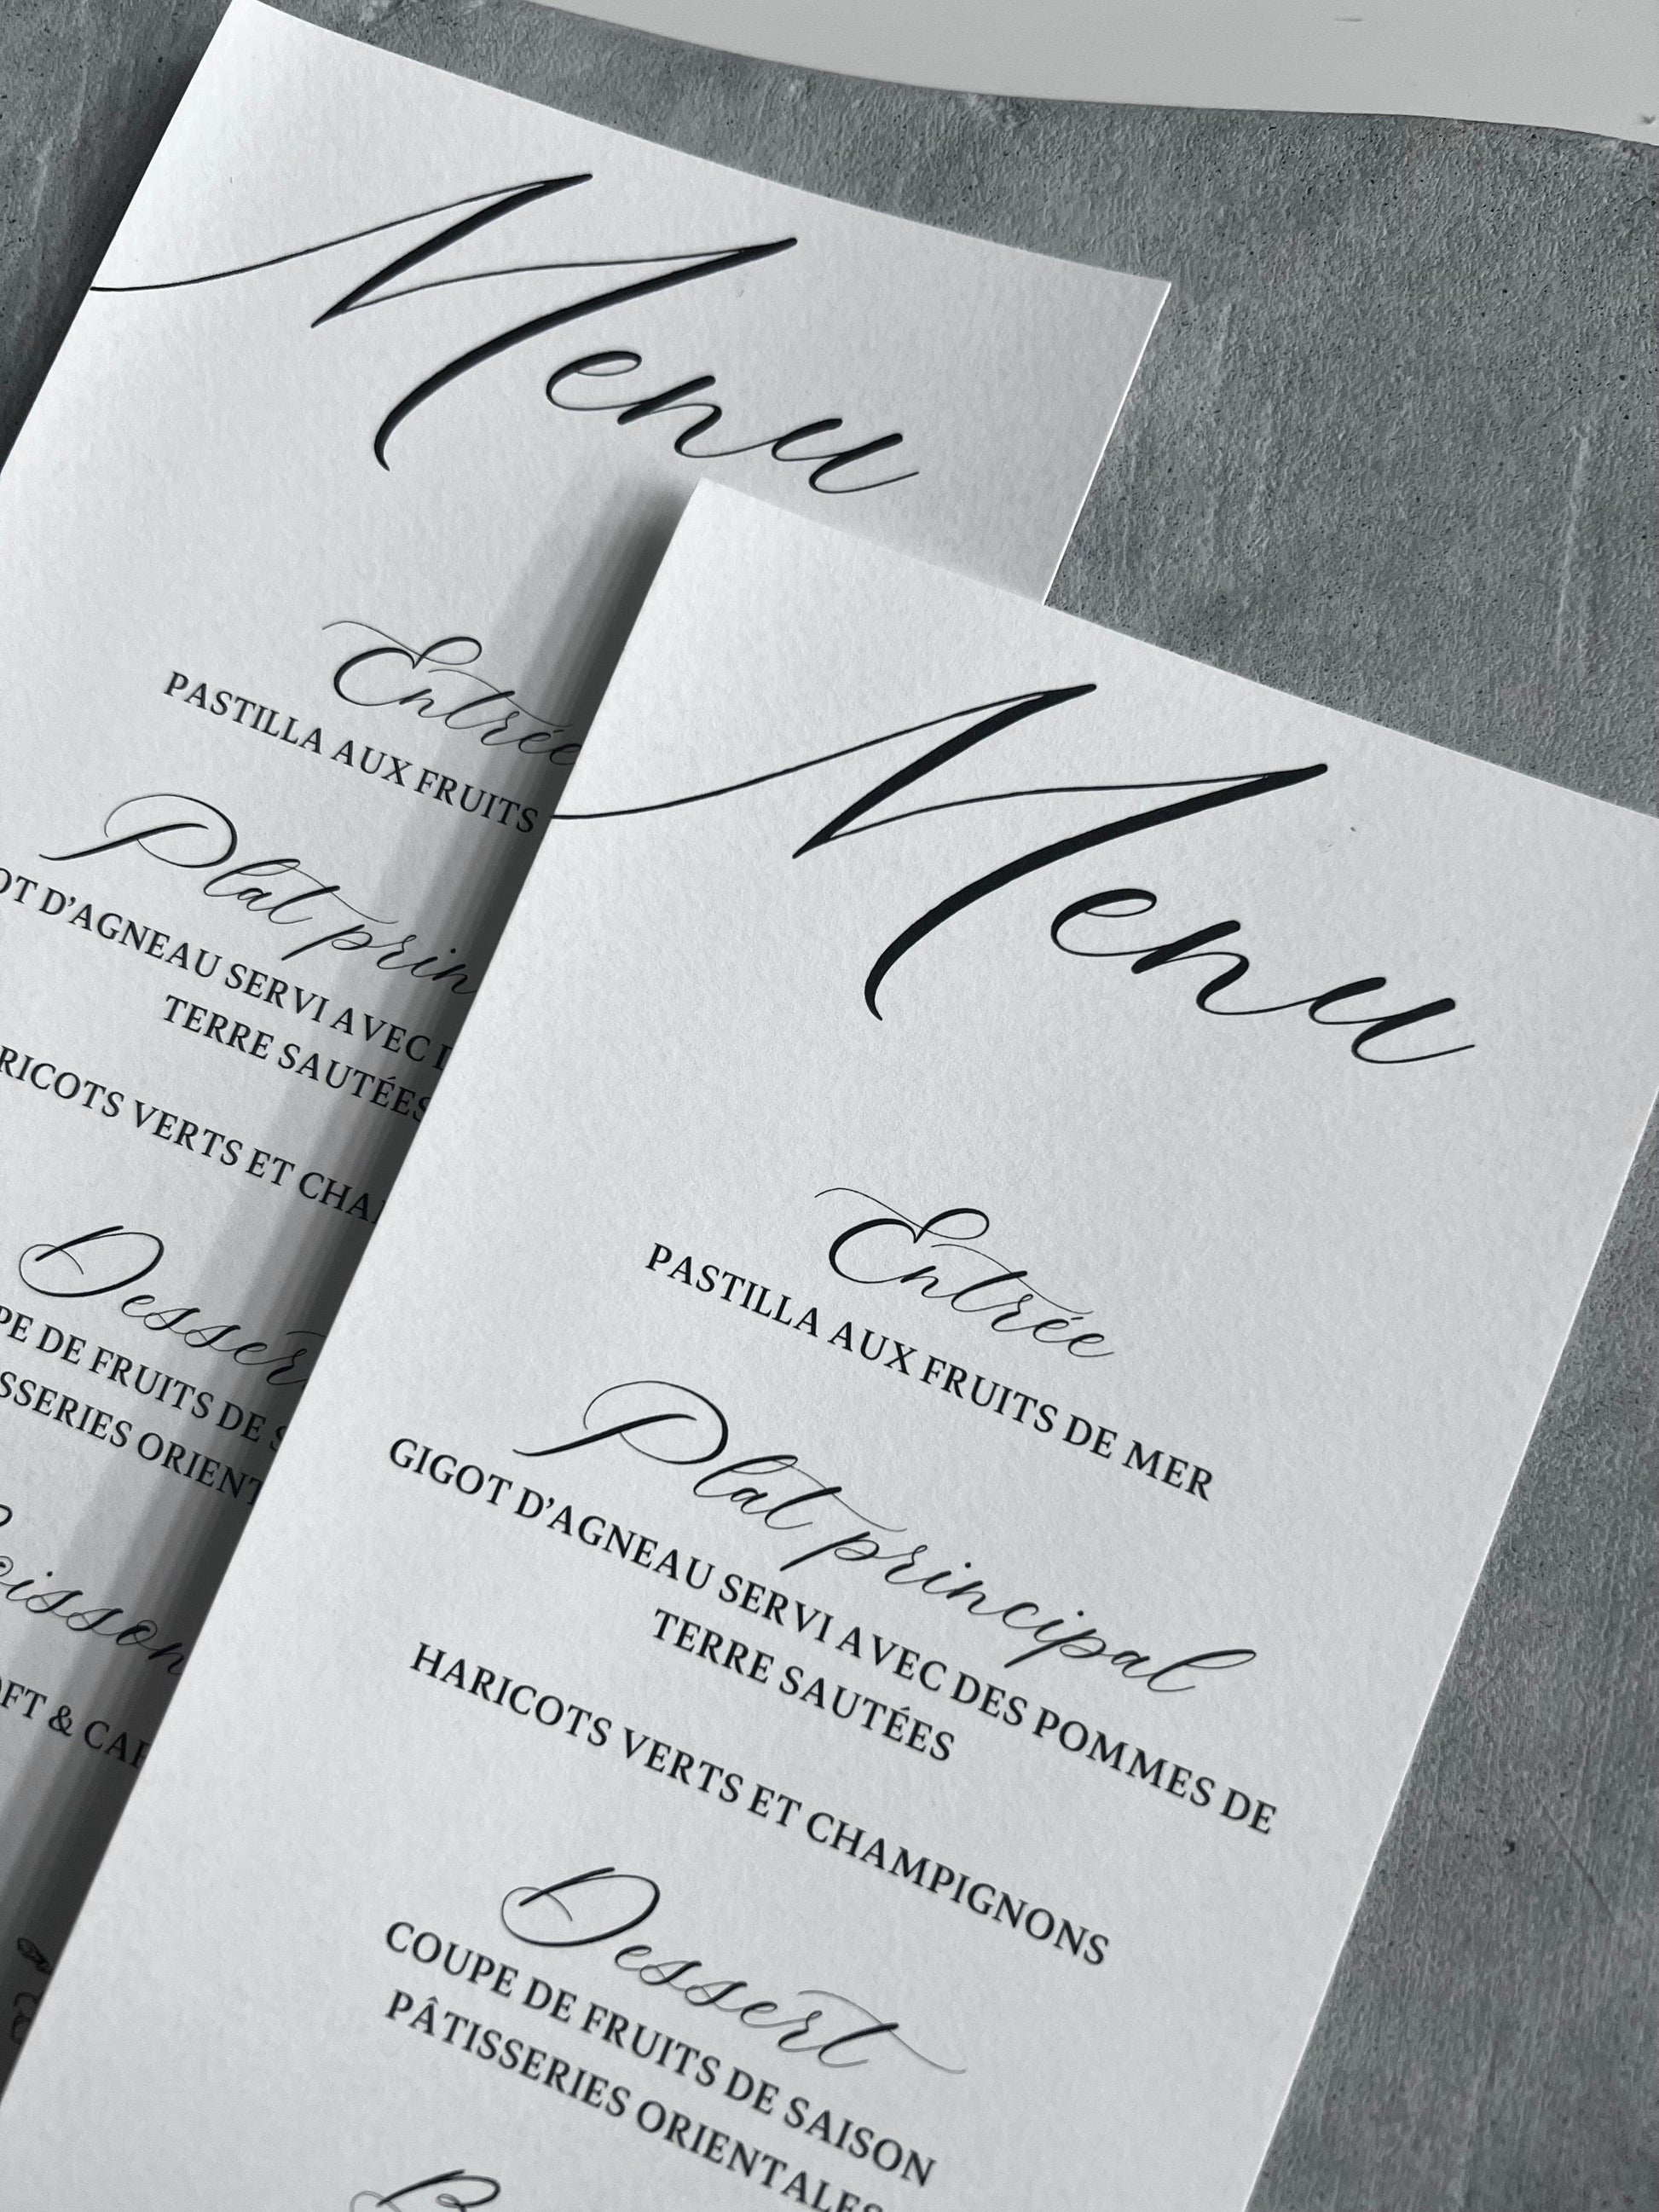 Menu
Entrée
PASTILLA AUX FRUITS
Plat
D'AGNEAU SERVI AVEC
TERRE SAUTÉES
VERTS ET
DE FRUITS DE
& 
Menu
Entrée
PASTILLA AUX FRUITS DE MER
Plat principal
GIGOT D'AGNEAU SERVI AVEC DES POMMES DE
TERRE SAUTÉES
HARICOTS VERTS ET CHAMPIGNONS
Dessert
COUPE DE FRUITS DE SAISON
PÂTISSERIES ORIENTALES